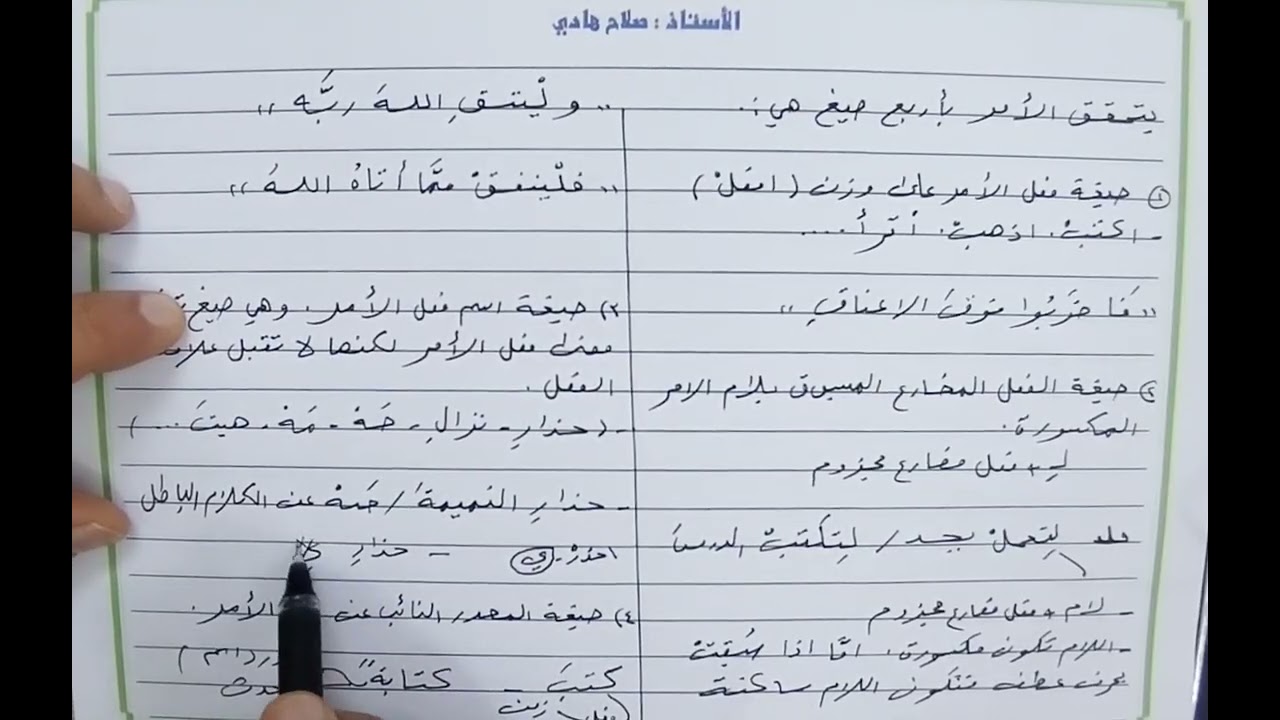 الأستاذ : صلاح هادي
يتحقق الأمر بأربع صيغ هي :.
① صيغة فعل الأمر على وزن ( افعلْ )
- اكتبْ. اذهبْ. أقرأ ....
،، فَاضرَبُوا فوقَ الاعناقِ ،،
② صيغة الفعل المضارع المسبوق بلام الامر
المكسورة.
لِـ + فعل مضارع مجزوم
لِتعملْ بجد / لِتكتبْ الدرسَ
- لام + فعل مضارع مجزوم
- اللام تكون مكسورة. امّا اذا سُبقتْ
بحرف عطف فتكون اللام ساكنة
،، و لْيتقِ اللهَ ربَّه ،،
،، فلْينفقْ ممَّا أتاهُ اللهُ ،،
٣) صيغة اسم فعل الأمر. وهي صيغ
معنى فعل الأمر لكنها لا تقبل
الفعل.
- ( حذارِ - نزالِ - صَهْ - مَهْ - هيتَ ... )
- حذارِ النميمةَ / صَهْ عن الكلام الباطل
احذرْ. ي - حذارِ
٤) صيغة المصدر النائب عن الأمر.
كتبَ - كتابةً
فعل زمن